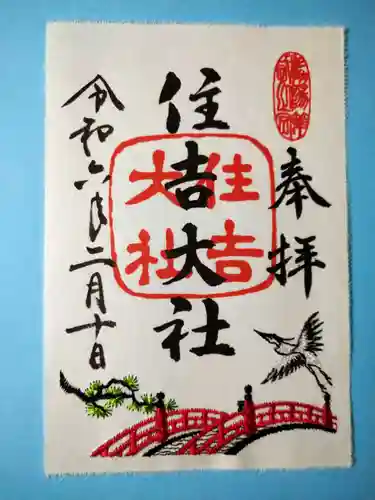 奉拝
住吉大社
住吉大社
令和六年二月十日